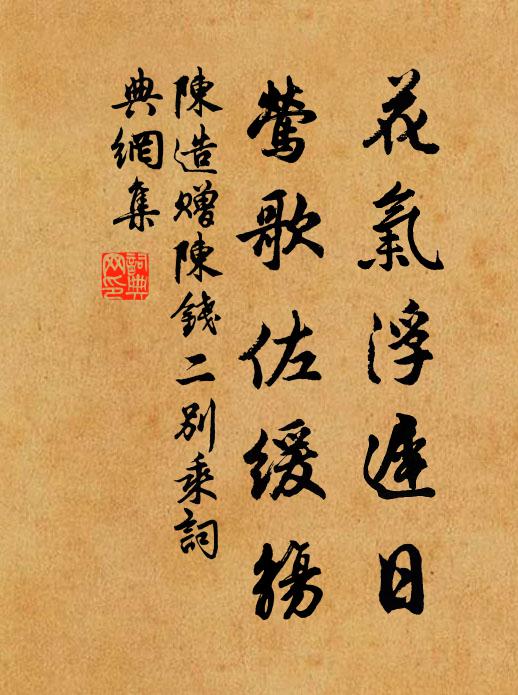 花氣浮遲日
鶯歌佐緩觴
陳造贈陳錢二別乘詞
典網集
詞典
网印